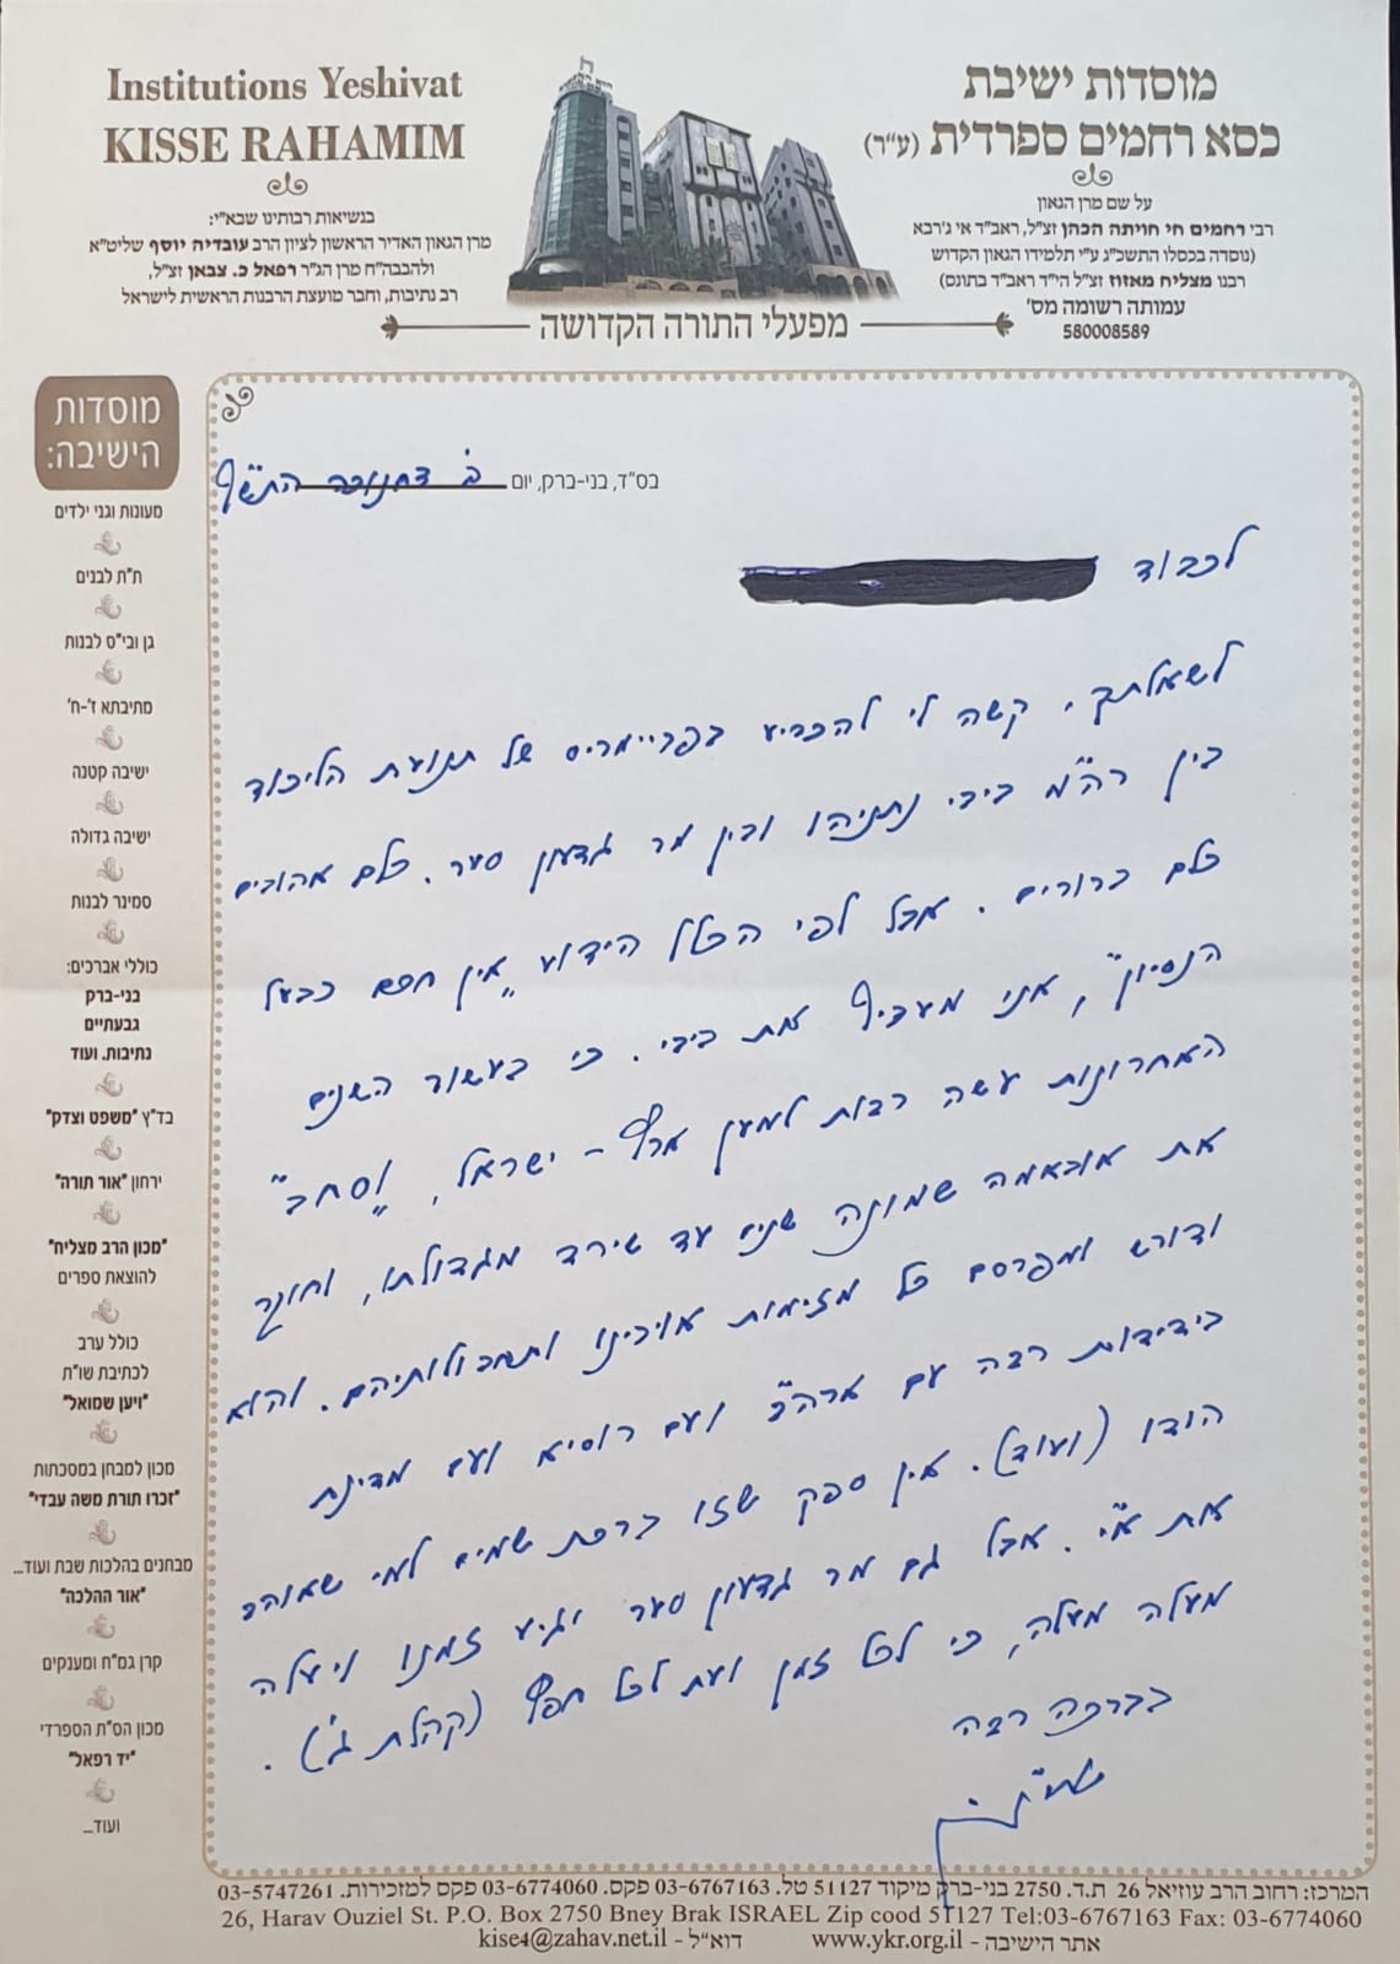 Institutions Yeshivat
KISSE RAHAMIM
בנשיאות רבותינו שבא"י:
מרן הגאון האדיר הראשון לציון הרב עובדיה יוסף שליט"א
ולהבבה"ח מרן הג"ר רפאל כ. צבאן זצ"ל,
רב נתיבות, וחבר מועצת הרבנות הראשית לישראל
מוסדות ישיבת
כסא רחמים ספרדית (ע"ר)
על שם מרן הגאון
רבי רחמים חי חויתה הכהן זצ"ל, ראב"ד אי ג'רבא
(נוסדה בכסלו התשכ"ג ע"י תלמידו הגאון הקדוש
רבנו מצליח מאזוז זצ"ל הי"ד ראב"ד בתונס)
עמותה רשומה מס'
580008589
מפעלי התורה הקדושה
מוסדות
הישיבה:
מעונות וגני ילדים
ת"ת לבנים
גן ובי"ס לבנות
מתיבתא ז'-ח'
ישיבה קטנה
ישיבה גדולה
סמינר לבנות
כוללי אברכים:
בני-ברק
גבעתיים
נתיבות. ועוד
בד"ץ "משפט וצדק"
ירחון "אור תורה"
"מכון הרב מצליח"
להוצאת ספרים
כולל ערב
לכתיבת שו"ת
"ויען שמואל"
מכון למבחן במסכתות
"זכרו תורת משה עבדי"
מבחנים בהלכות שבת ועוד...
"אור ההלכה"
קרן גמ"ח ומענקים
מכון הס"ת הספרדי
"יד רפאל"
ועוד...
בס"ד, בני-ברק, יום ב' דחנוכה התש"ף
לכבוד
לשאלתך, קשה לי להכריע בפריימריס של תנועת הליכוד
בין רה"מ ביבי נתניהו ובין מר גדעון סער. כלם אהובים
כלם ברורים. אבל לפי הכלל הידוע "אין חכם כבעל
הנסיון", אני מעדיף את ביבי. כי בעשור השנים
האחרונות עשה רבות למען ארץ-ישראל, ו"סחב"
את אובאמה שמונה שנים עד שירד מגדולתו, וחוקר
ודורש ומפרסם כל מזימות אויבינו ותחבולותיהם. והוא
בידידות רבה עם ארה"ב ועם רוסיא ועם מדינת
הודו (ועוד). אין ספק שזו ברכת שמים למי שאוהב
את א"י. אבל גם מר גדעון סער יגיע זמנו ויעלה
מעלה מעלה, כי לכל זמן ועת לכל חפץ (קהלת ג').
בברכה רבה
המרכז: רחוב הרב עוזיאל 26 ת.ד. 2750 בני-ברק מיקוד 51127 טל. 03-6767163 פקס. 03-6774060 פקס למזכירות. 03-5747261
26, Harav Ouziel St. P.O. Box 2750 Bney Brak ISRAEL Zip cood 51127 Tel:03-6767163 Fax: 03-6774060
אתר הישיבה - www.ykr.org.il דוא"ל - kise4@zahav.net.il